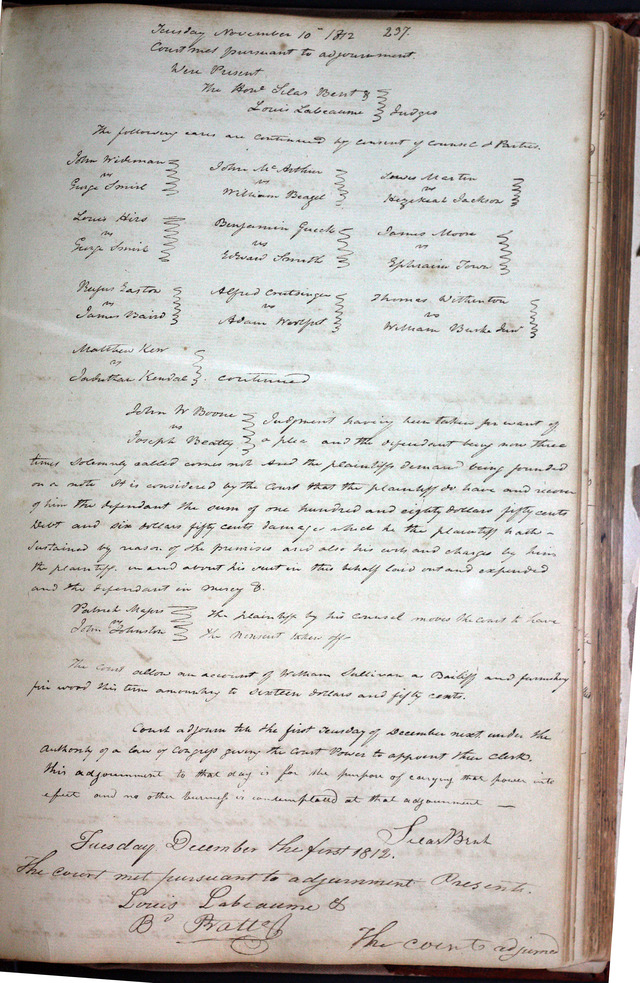 Tuesday November 10th 1812 237.
Court met pursuant to adjournment.
Were Present
The Honl. Silas Bent &
Louis Labeaume Judges
The following cases are continued by consent of counsel & Parties.
John Wideman
vs
George Smirl
John McArthur
vs
William
Lewis Martin
vs
Hezekeah Jackson
Louis
vs
George Smirl
Benjamin
vs
Edward Smith
James Moore
vs
Ephraim Town
Rufus Easton
vs
James Baird
Alfred Crutsinger
vs
Adam
Thomas Witherington
vs
William Burke
Matthew Kerr
vs
Jaduthar Kendal continued
John W Boone
vs
Joseph Beatty
Judgment having been taken for want of
a plea and the defendant being now three
times solemnly called comes not and the plaintiffs demand being founded
on a note It is considered by the Court that the plaintiff do have and recover
of him the defendant the sum of one hundred and eighty dollars fifty cents
Debt and six dollars fifty cents damages which he the plaintiff hath
sustained by reason of the premises and also his costs and charges by him
the plaintiff in and about his suit in this behalf laid out and expended
and the defendant in mercy &.
Patrick
vs
John Johnston
the plaintiff by his counsel moves the court to have
the nonsuit taken off
The Court allow an account of William Sullivan as Bailiff and furnishing
fire wood this term amounting to sixteen dollars and fifty cents.
Court adjourn till the first Tuesday of December next under the
Authority of a law of Congress giving the Court Power to appoint their Clerk.
this adjournment to that day is for the purpose of carrying that power into
effect and no other business is contemplated at that adjournment —
Silas Bent
Tuesday December the first 1812.
The court met pursuant to adjournment Present.
Louis Labeaume &
Bd Pratte
The court adjourned